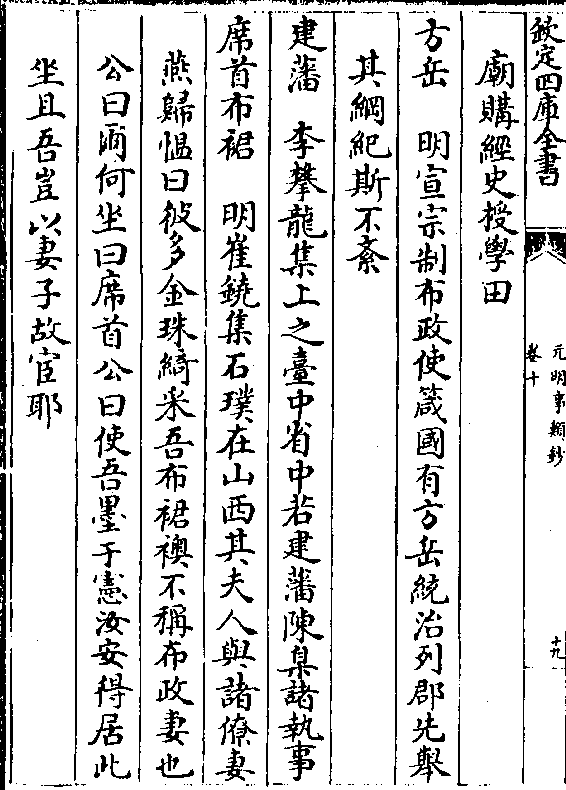 欽定四庫全書
元明事類鈔
卷十
十九
廟購經史授學田
方岳　明宣宗制布政使箴國有方岳統治列郡先舉
其綱紀斯不紊
建藩　李攀龍集上之臺中省中若建藩陳臬諸執事
席首布裙　明崔銑集石璞在山西其夫人與諸僚妻
燕歸愠曰彼多金珠綺采吾布裙襖不稱布政妻也
公曰爾何坐曰席首公曰使吾墨于憲汝安得居此
坐且吾豈以妻子故宦耶